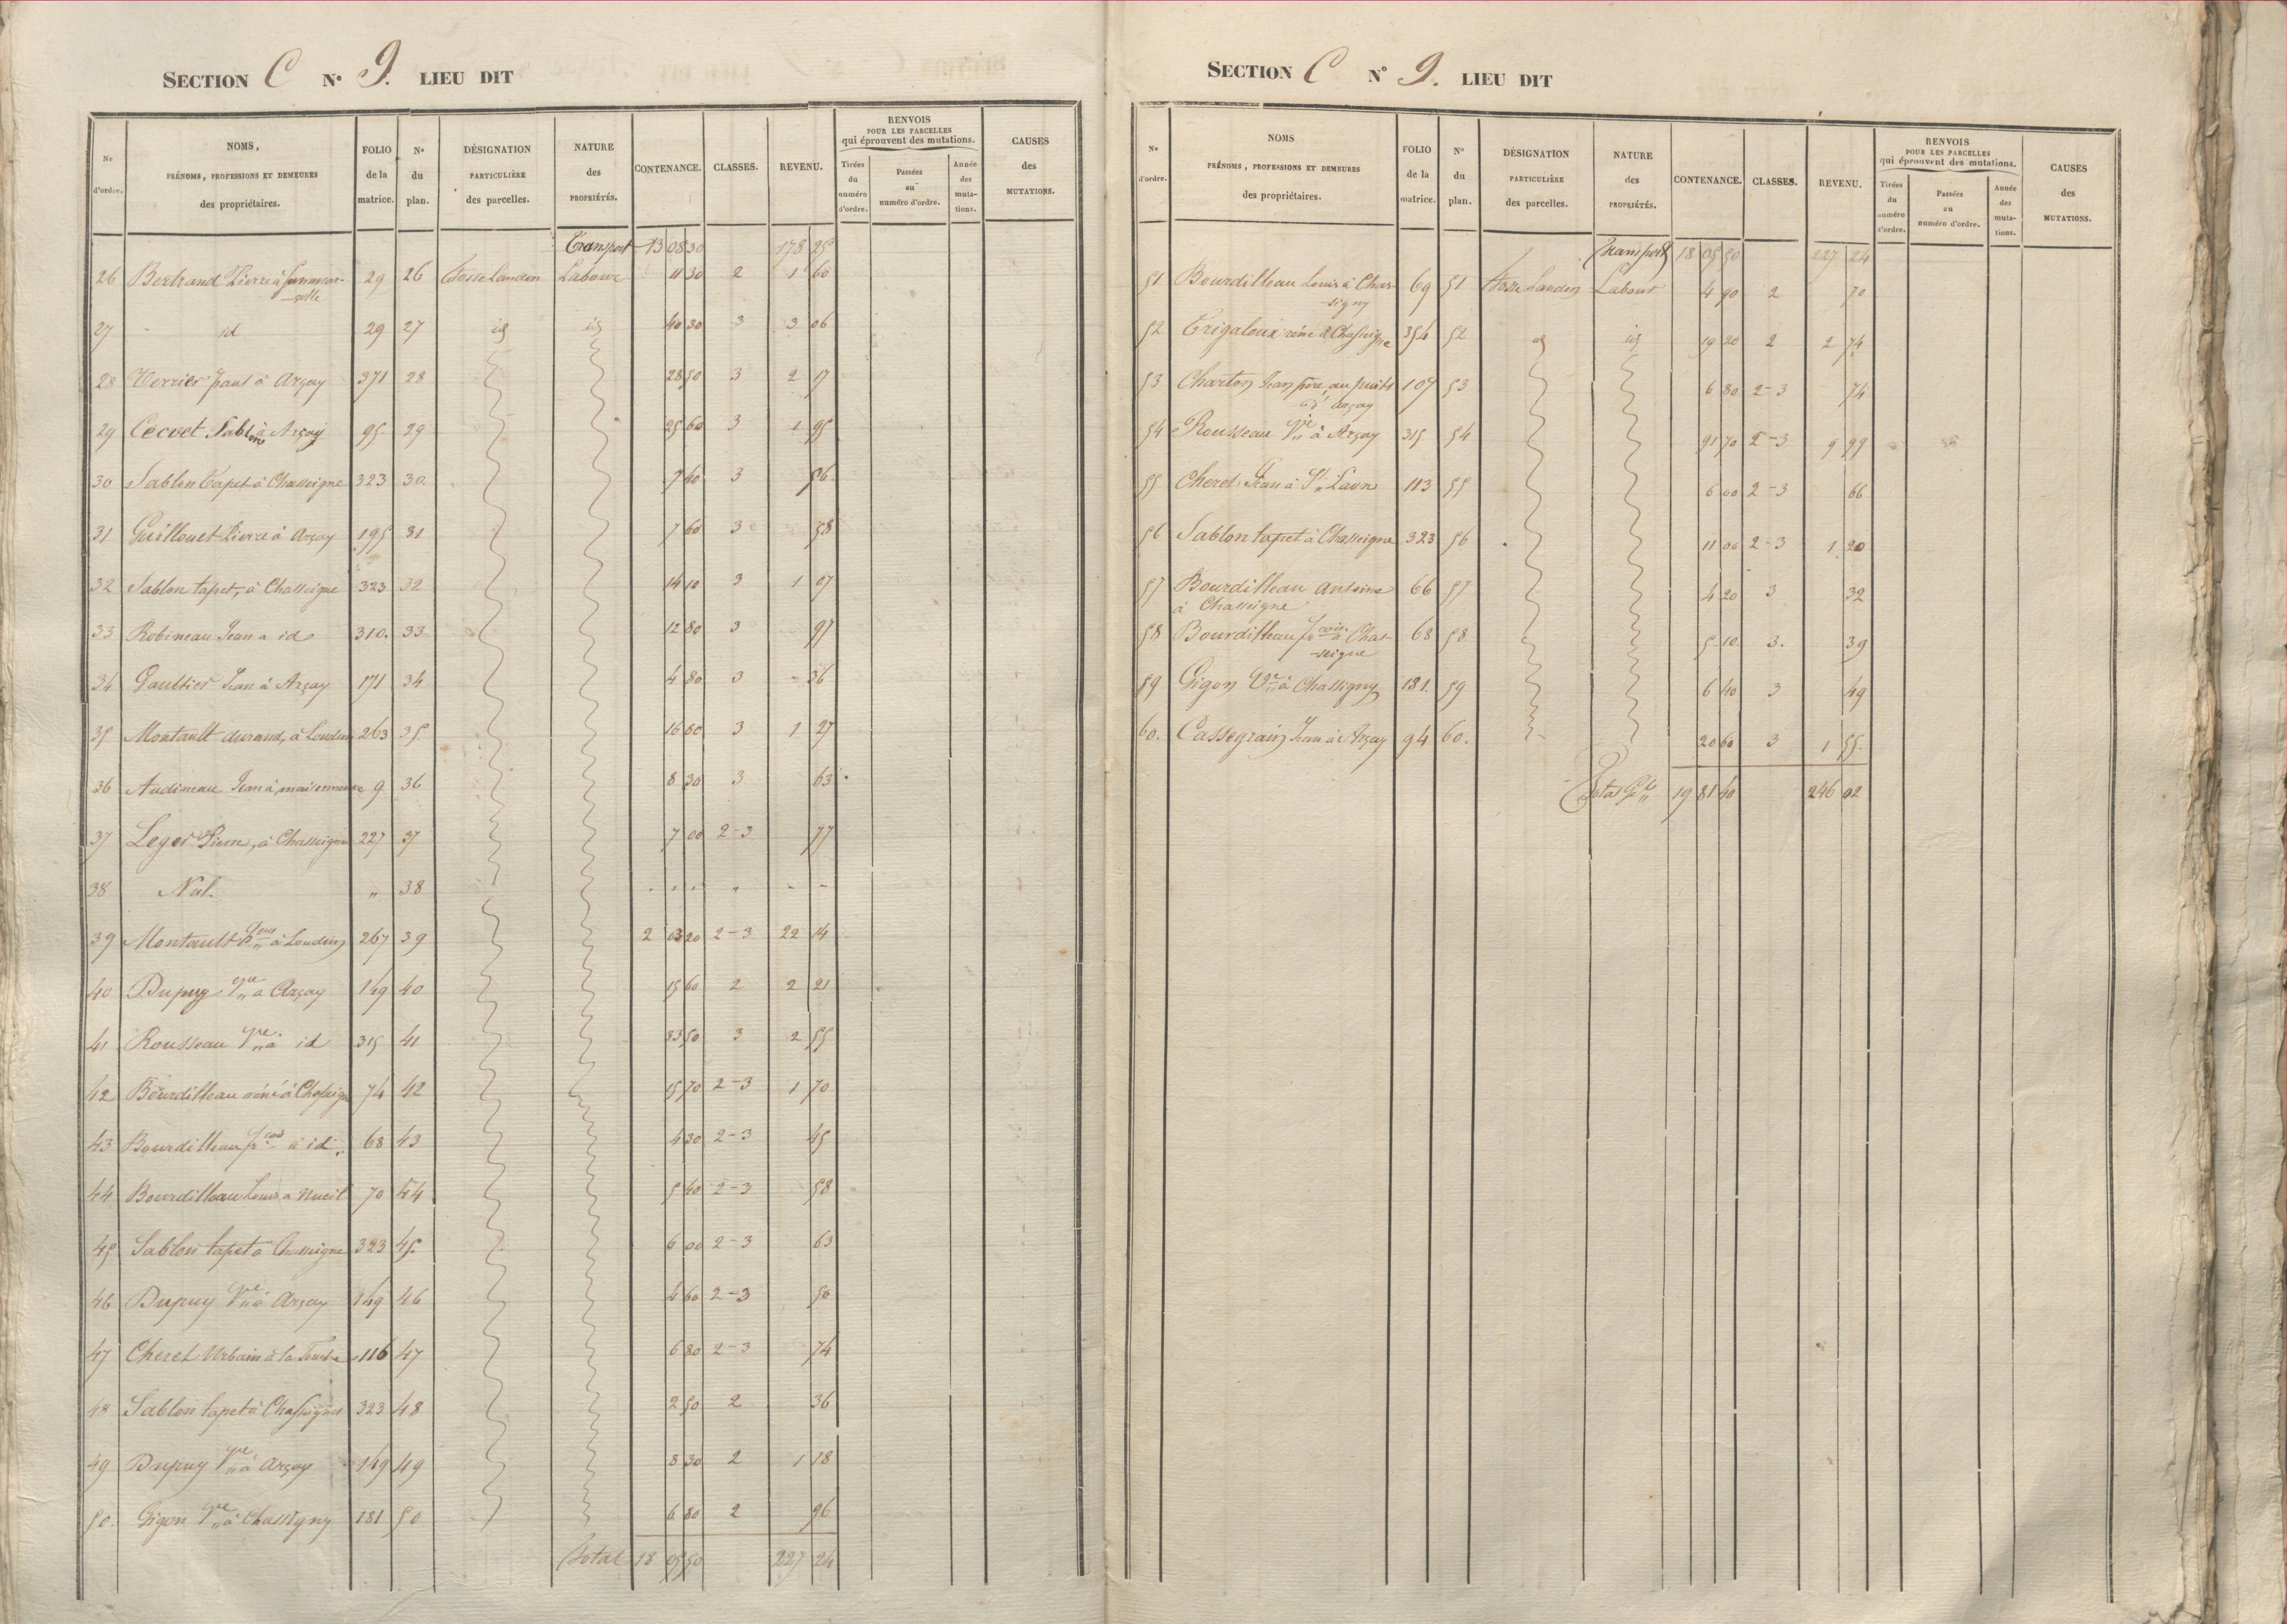 SECTION C N° 9. LIEU DIT
N° d'ordre. NOMS, PRÉNOMS, PROFESSIONS ET DEMEURES des propriétaires. FOLIO de la matrice. N° du plan. DÉSIGNATION PARTICULIÈRE des parcelles. NATURE des PROPRIÉTÉS. CONTENANCE. CLASSES. REVENU. RENVOIS POUR LES PARCELLES qui éprouvent des mutations. Tirées du numéro d'ordre. Passées au numéro d'ordre. Année des mutations. CAUSES des MUTATIONS.
Transport 13 08 30 178 25
26 Bertrand Pierre à 29 26 fosse Landon Labour 11 30 2 1 60
27 id 29 27 id id 40 30 3 3 06
28 Verrier paul à Arçay 371 28 28 50 3 2 17
29 Cecvet Sablon à Arçay 95 29 25 60 3 1 95
30 Sablon Tapet à Chasseigne 323 30 7 40 3 56
31 Guillouet Pierre à Arçay 195 31 7 60 3 58
32 Sablon tapet, à Chasseigne 323 32 14 10 3 1 07
33 Robineau Jean a id 310. 33 12 80 3 97
34 Gaultier Jean à Arçay 171 34 4 80 3 36
35 Montault durand, à Loudun 263 35 16 80 3 1 27
36 Audineau Jean à maisonneuve 9 36 8 30 3 63
37 Leger Pierre, à Chasseigne 227 37 7 00 2-3 77
38 Nul. " 38
39 Montault à Loudun 267 39 2 03 20 2-3 22 14
40 Dupuy Vve à Arçay 149 40 15 60 2 2 21
41 Rousseau Vve à id 315 41 33 50 3 2 55
42 Bourdilleau réné à Chasseigne 74 42 15 70 2-3 1 70
43 Bourdilleau fcois à id. 68 43 4 30 2-3 45
44 Bourdilleau Louis a Nueil 70 44 5 40 2-3 58
45 Sablon tapet à Chasseigne 323 45 6 00 2-3 63
46 Dupuy Vve à Arçay 149 46 4 60 2-3 50
47 Cheret Urbain à la Touche 116 47 6 80 2-3 74
48 Sablon tapet à Chasseigne 323 48 2 50 2 36
49 Dupuy Vve à Arçay 149 49 8 30 2 1 18
50. Gigon Vve à Chassigny 181 50 6 80 2 96
Total 18 05 50 227 24
SECTION C N° 9. LIEU DIT
N° d'ordre. NOMS PRÉNOMS, PROFESSIONS ET DEMEURES des propriétaires. FOLIO de la matrice. N° du plan. DÉSIGNATION PARTICULIÈRE des parcelles. NATURE des PROPRIÉTÉS. CONTENANCE. CLASSES. REVENU. RENVOIS POUR LES PARCELLES qui éprouvent des mutations. Tirées du numéro d'ordre. Passées au numéro d'ordre. Année des mutations. CAUSES des MUTATIONS.
Transport 18 05 50 227 24
51 Bourdilleau Louis à Chas-
signy 69 51 fosse Landon Labour 4 90 2 70
52 Trigaloux réné à Chasseigne 354 52 id id 19 20 2 2 74
53 Charton Jean père, au puits
d'arçay 107 53 6 80 2-3 74
54 Rousseau Vve à Arçay 315 54 91 70 2-3 9 99
55 Cheret Jean à St Laon 113 55 6 00 2-3 66
56 Sablon tapet à Chasseigne 323 56 11 00 2-3 1 20
57 Bourdilleau Antoine
à Chasseigne 66 57 4 20 3 32
58 Bourdilleau fcois à Chas-
seigne 68 58 5 10 3. 39
59 Gigon Vve à Chassigny 181. 59 6 40 3 49
60. Cassegrain Jean à Arçay 94 60. 20 60 3 1 55
Total Gal 19 81 40 246 02